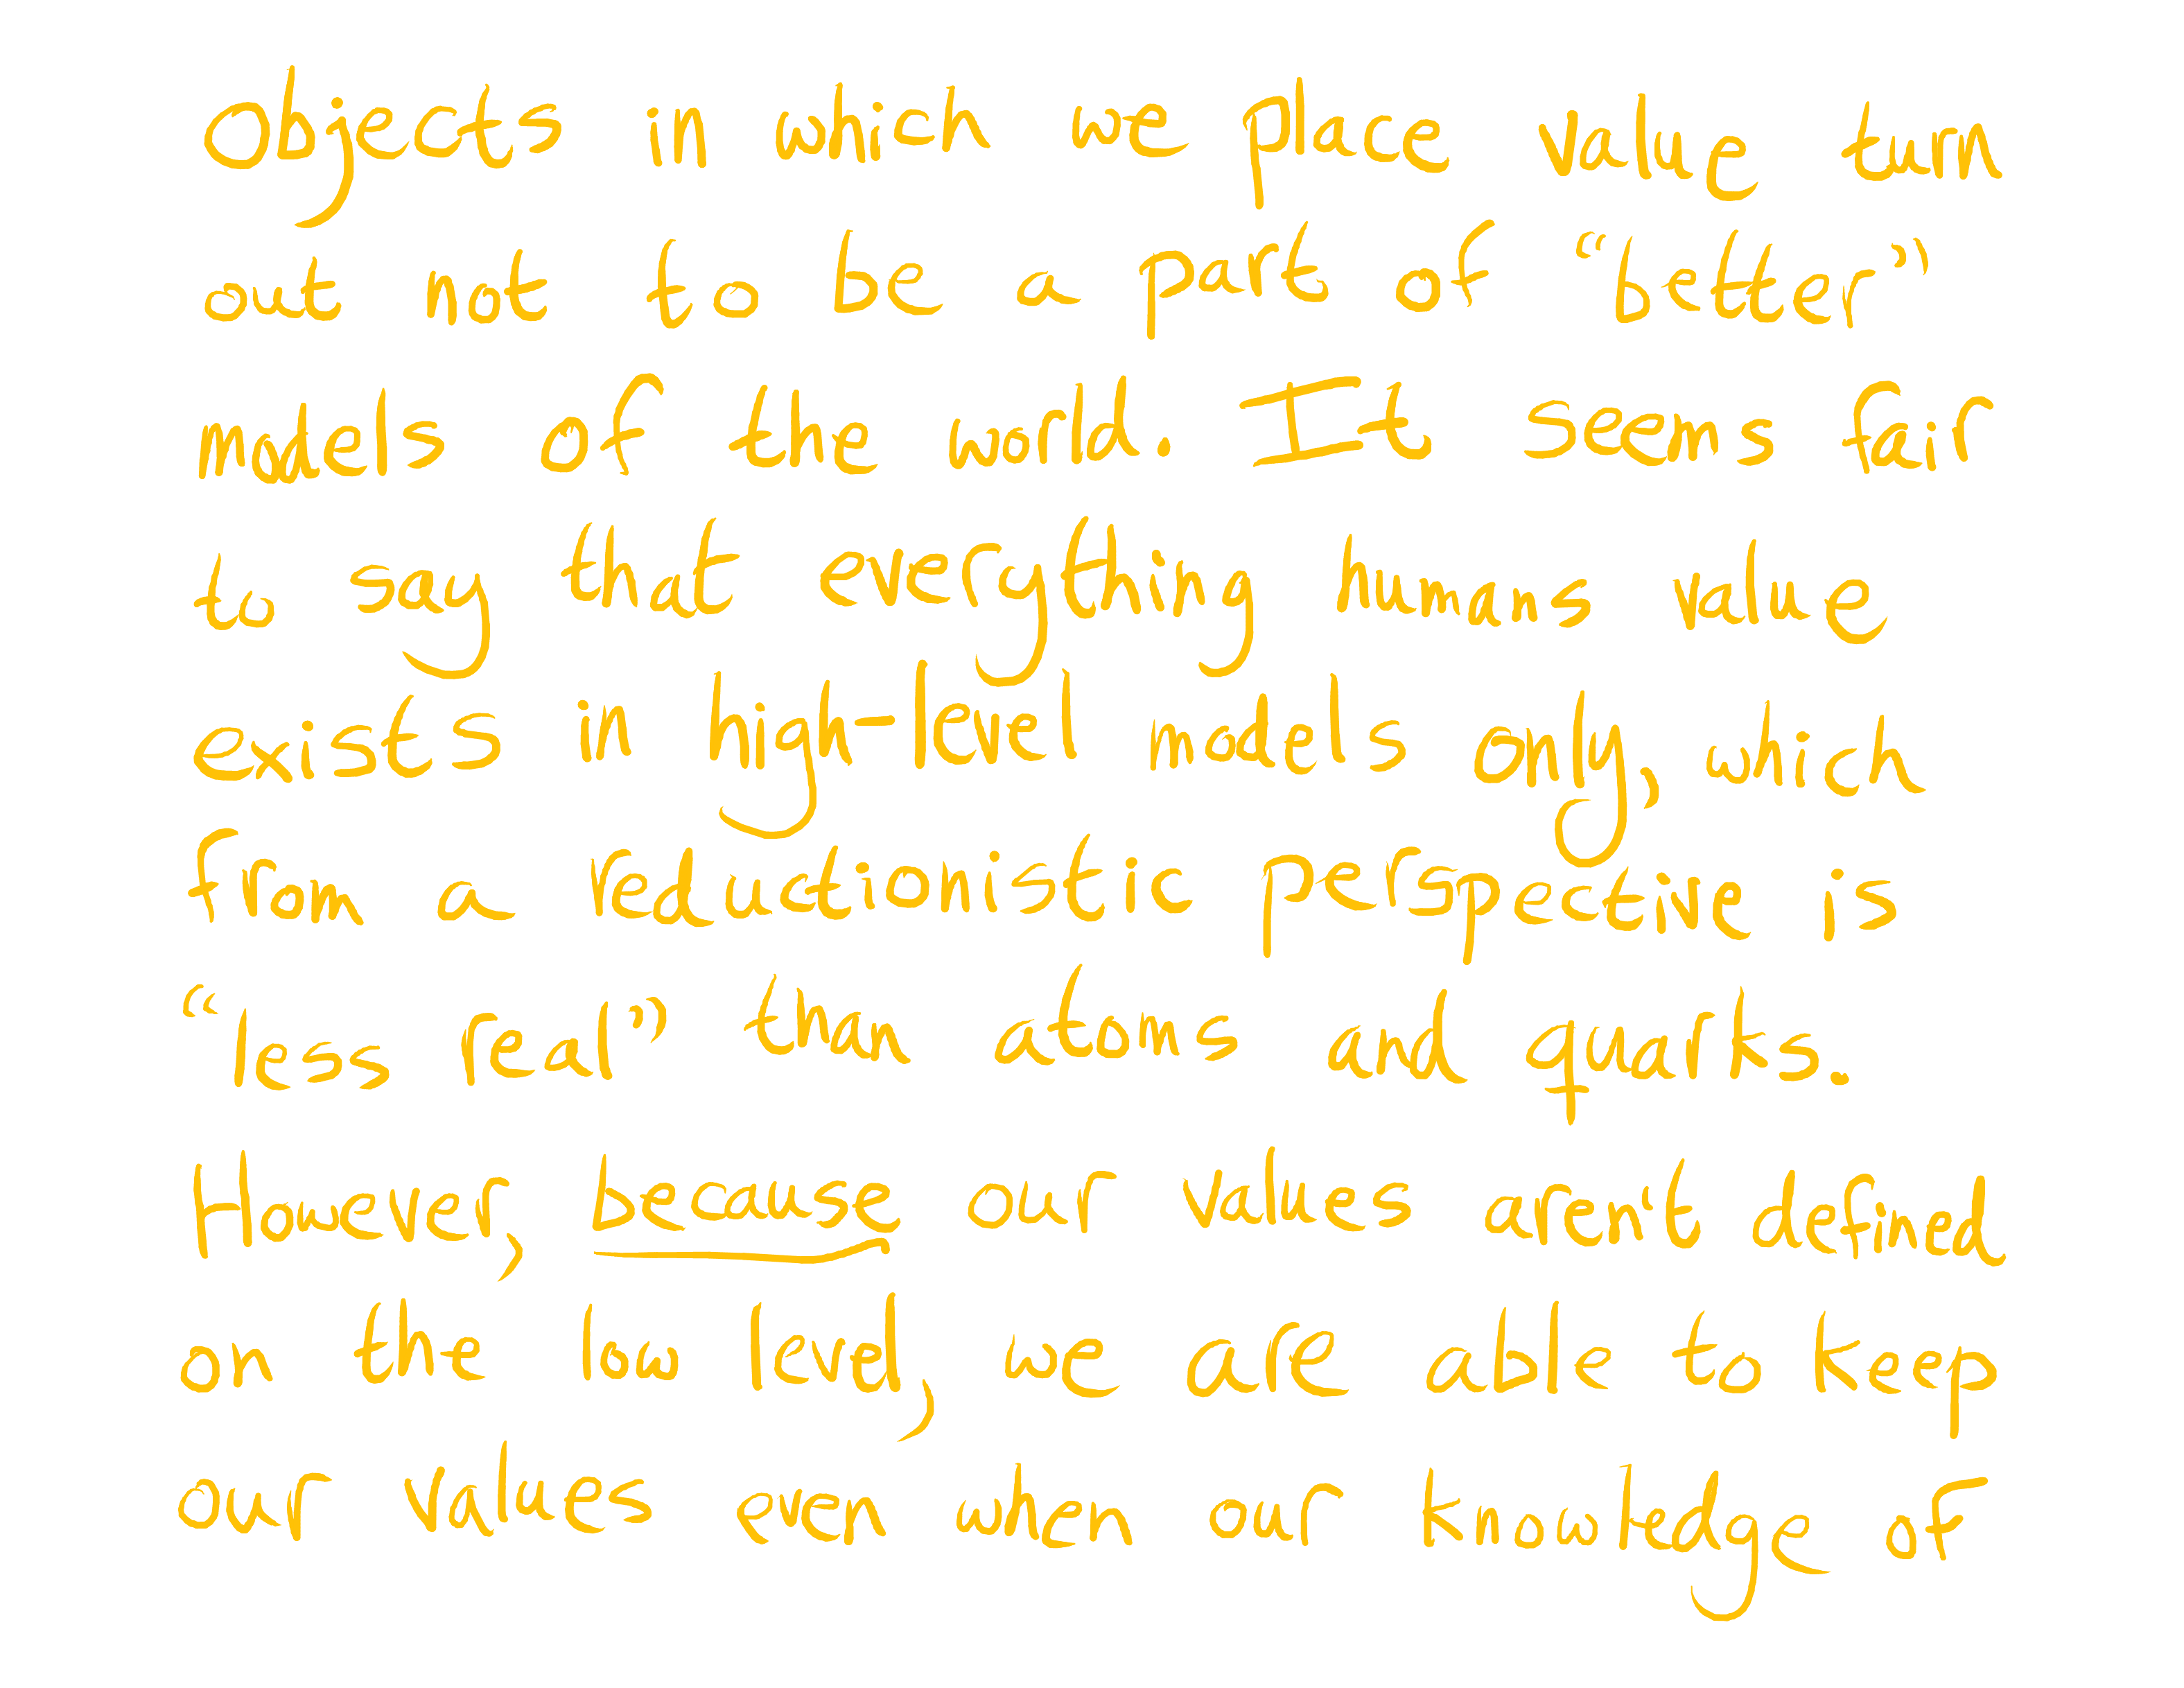 objects in which we place value turn
out not to be a part of “better”
models of the world. It seems fair
to say that everything humans value
exists in high-level models only, which
from a reductionistic perspective is
“less real” than atoms and quarks.
However, because our values aren't defined
on the low level, we are able to keep
our values even when our knowledge of